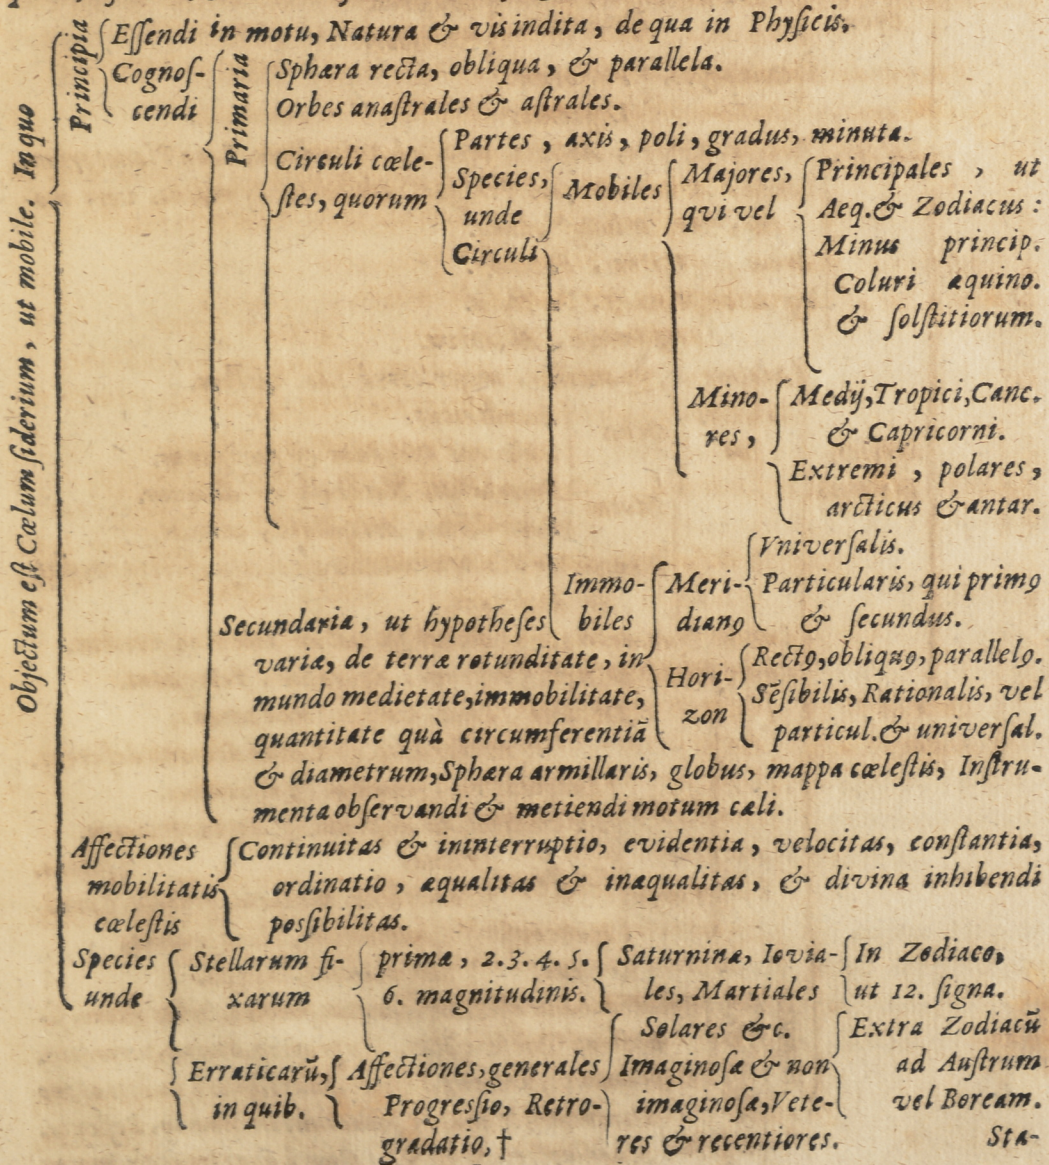 Objectum est Cælum siderium, ut mobile. In quo
Principia
Essendi in motu, Natura & vis indita, de qua in Physicis.
Cognos-
cendi
Primaria
Sphæra recta, obliqua, & parallela.
Orbes anastrales & astrales.
Circuli cœle-
stes, quorum
Partes, axis, poli, gradus, minuta.
Species,
unde
Circuli
Mobiles
Majores,
qui vel
Principales, ut
Aeq. & Zodiacus:
Minus princip.
Coluri æquino.
& solstitiorum.
Mino-
res,
Medij, Tropici, Canc.
& Capricorni.
Extremi, polares,
arcticus & antar.
Immo-
biles
Meri-
dianꝰ
Vniversalis.
Particularis, qui primꝰ
& secundus.
Hori-
zon
Rectꝰ, obliquꝰ, parallelꝰ.
Sẽsibilis, Rationalis, vel
particul. & universal.
Secundaria, ut hypotheses
variæ, de terræ rotunditate, in
mundo medietate, immobilitate,
quantitate quà circumferentiã
& diametrum, Sphæra armillaris, globus, mappa cœlestis, Instru-
menta observandi & metiendi motum cæli.
Affectiones
mobilitatis
cœlestis
Continuitas & ininterruptio, evidentia, velocitas, constantia,
ordinatio, æqualitas & inæqualitas, & divina inhibendi
possibilitas.
Species
unde
Stellarum fi-
xarum
primæ, 2. 3. 4. 5.
6. magnitudinis.
Saturninæ, Iovia-
les, Martiales
Solares &c.
Imaginosæ & non
imaginosæ, Vete-
res & recentiores.
In Zodiaco,
ut 12. signa.
Extra Zodiacũ
ad Austrum
vel Boream.
Erraticarũ,
in quib.
Affectiones, generales
Progressio, Retro-
gradatio, †
Sta-